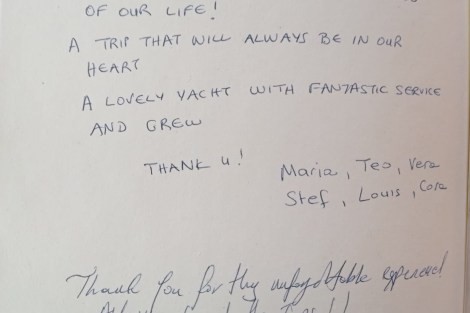 OF OUR LIFE!
A TRIP THAT WILL ALWAYS BE IN OUR
HEART
A LOVELY YACHT WITH FANTASTIC SERVICE
AND CREW
THANK U!
Maria, Teo, Vera
Stef, Louis, Cora
Thank you for thy unforgettable experience!